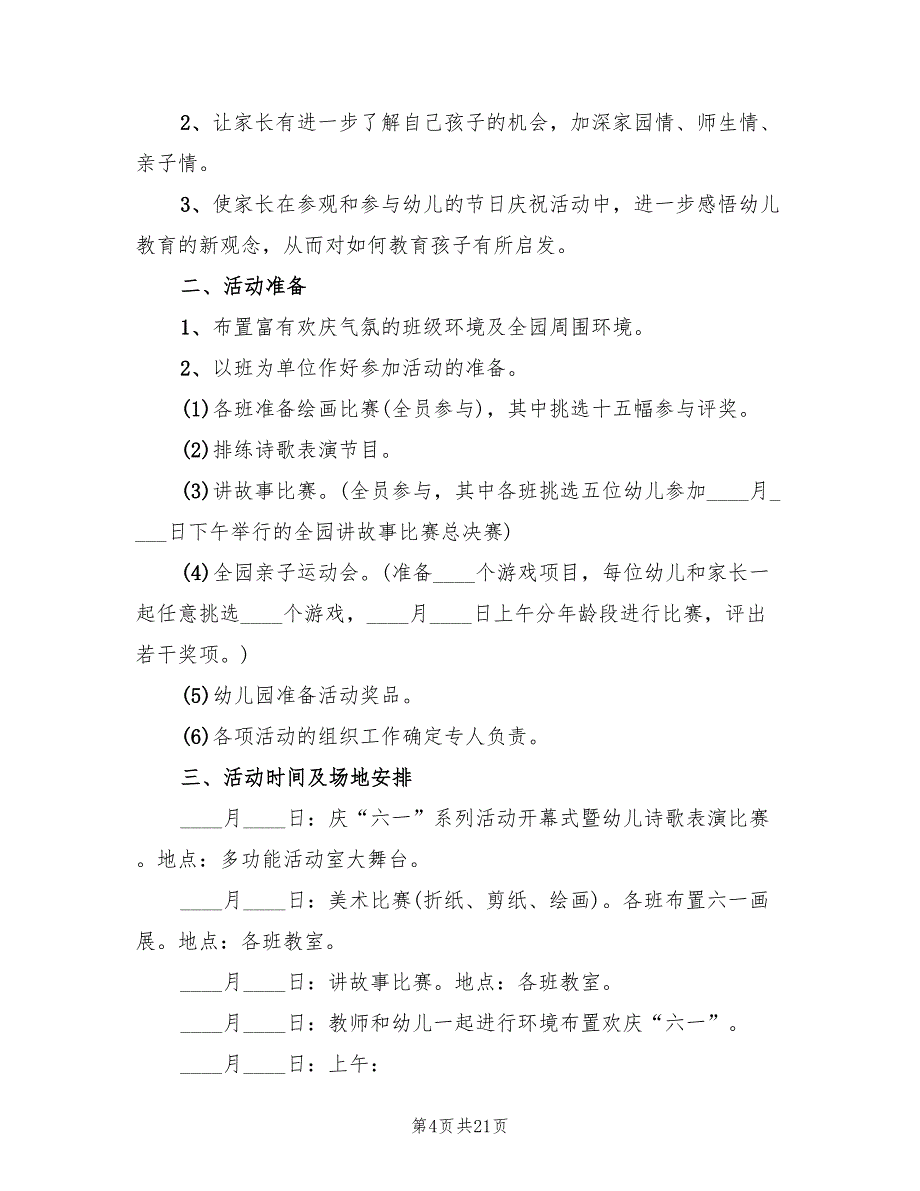 2、让家长有进一步了解自己孩子的机会，加深家园情、师生情、
亲子情。
3、使家长在参观和参与幼儿的节日庆祝活动中，进一步感悟幼儿
教育的新观念，从而对如何教育孩子有所启发。
二、活动准备
1、布置富有欢庆气氛的班级环境及全园周围环境。
2、以班为单位作好参加活动的准备。
(1)各班准备绘画比赛(全员参与)，其中挑选十五幅参与评奖。
(2)排练诗歌表演节目。
(3)讲故事比赛。(全员参与，其中各班挑选五位幼儿参加____月_
___日下午举行的全园讲故事比赛总决赛)
(4)全园亲子运动会。(准备____个游戏项目，每位幼儿和家长一
起任意挑选____个游戏，____月____日上午分年龄段进行比赛，评出
若干奖项。)
(5)幼儿园准备活动奖品。
(6)各项活动的组织工作确定专人负责。
三、活动时间及场地安排
____月____日：庆“六一”系列活动开幕式暨幼儿诗歌表演比赛
。地点：多功能活动室大舞台。
____月____日：美术比赛(折纸、剪纸、绘画)。各班布置六一画
展。地点：各班教室。
____月____日：讲故事比赛。地点：各班教室。
____月____日：教师和幼儿一起进行环境布置欢庆“六一”。
____月____日：上午：
第4页共21页